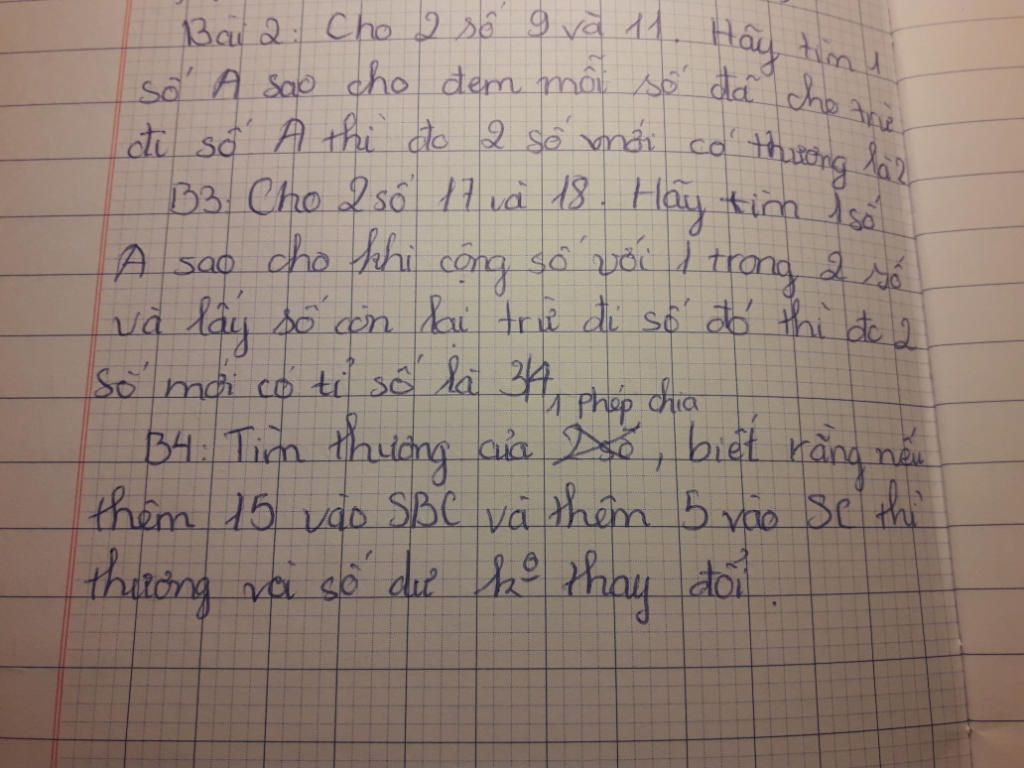 Bài 2: Cho 2 số 9 và 11. Hãy tìm 1
số A sao cho đem mỗi số đã cho trừ
đi số A thì đc 2 số mới có thương là 2
B3: Cho 2 số 17 và 18. Hãy tìm 1 số
A sao cho khi cộng số với 1 trong 2 số
và lấy số còn lại trừ đi số đó thì đc 2
số mới có tỉ số là 3/4
1 phép chia
B4: Tìm thương của 2 số, biết rằng nếu
thêm 15 vào SBC và thêm 5 vào SC thì
thương và số dư kº thay đổi.